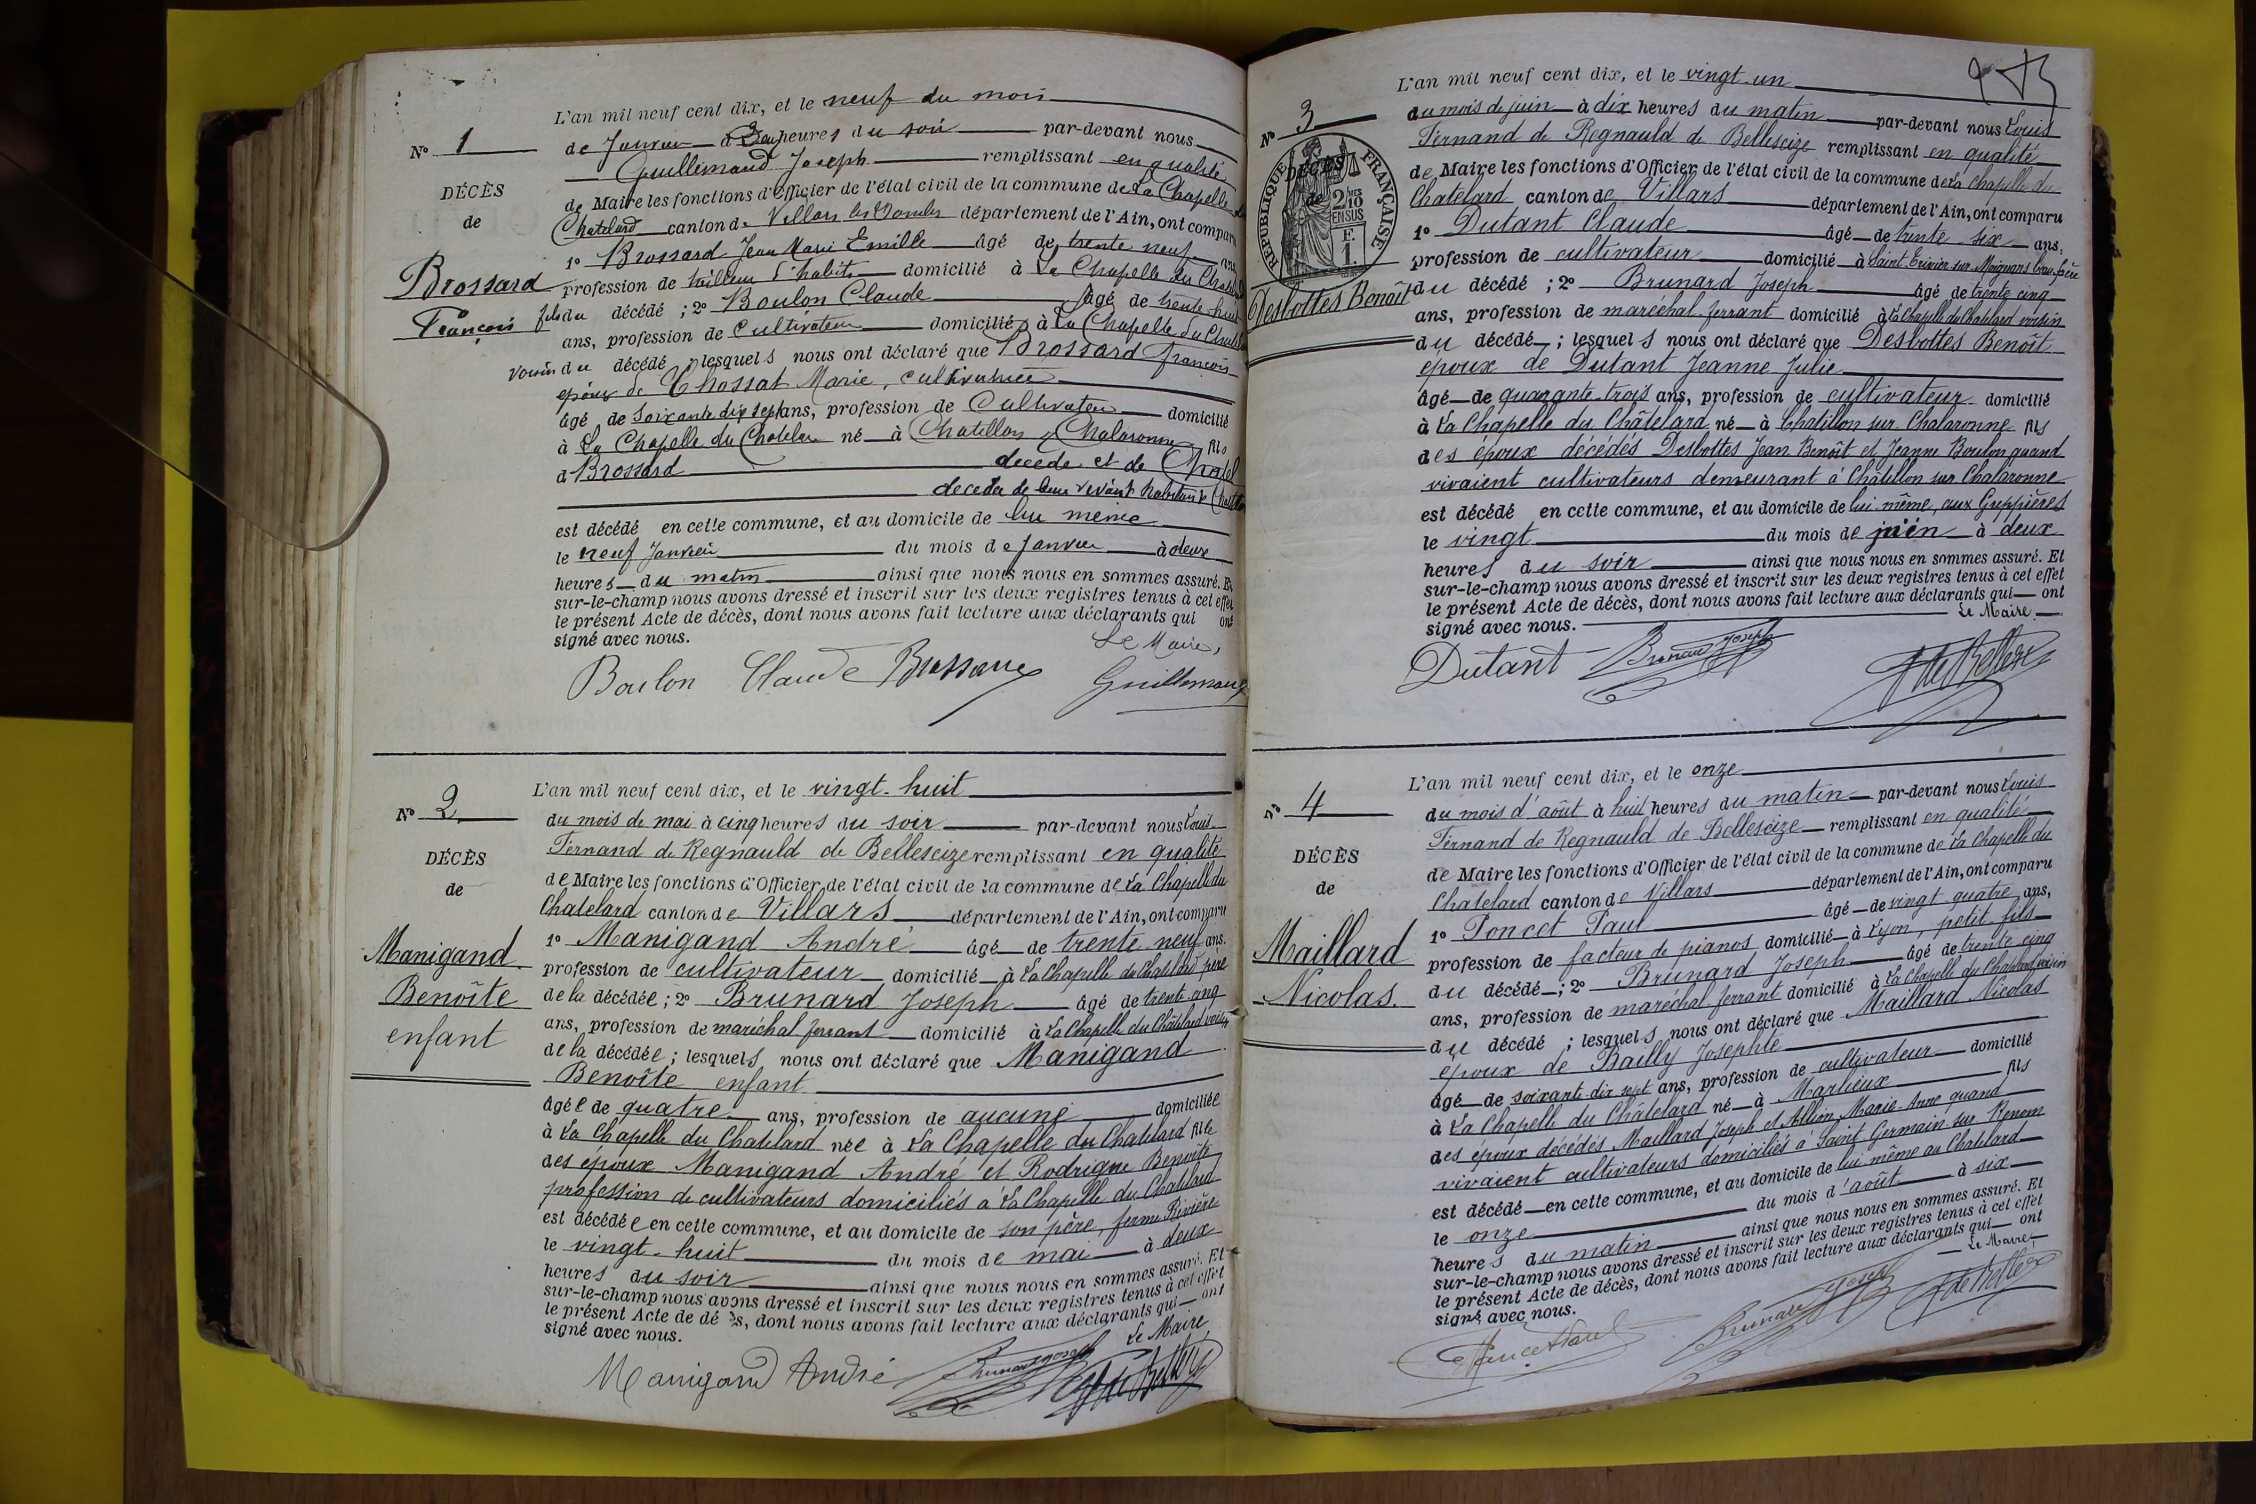 L'an mil neuf cent dix, et le neuf du mois
N° 1
de Janvier à heures du soir par-devant nous
Guillemaud Joseph remplissant en qualité
DÉCÈS
de Maire les fonctions d'Officier de l'état civil de la commune de La Chapelle du
de
Chatelard canton de Villars les Dombes département de l'Ain, ont comparu
1° Brossard Jean Marie Emille âgé de trente neuf ans
Brossard
profession de tailleur d'habits domicilié à La Chapelle du Chatelard
François
fils du décédé ; 2° Boulon Claude âgé de trente huit
ans, profession de Cultivateur domicilié à La Chapelle du Chatelard
voisin du décédé lesquels nous ont déclaré que Brossard françois
époux de Chossat Marie, cultivatrice
âgé de soixante dix sept ans, profession de Cultivateur domicilié
à La Chapelle du Chatelar né à Chatillon s/ Chalaronne fils
d Brossard décédé et de
décédés de leur vivant habitant Chatillon
est décédé en cette commune, et au domicile de lui même
le neuf Janvier du mois de Janvier à deux
heures du matin ainsi que nous nous en sommes assuré. Et
sur-le-champ nous avons dressé et inscrit sur les deux registres tenus à cet effet
le présent Acte de décès, dont nous avons fait lecture aux déclarants qui ont
signé avec nous.
Le Maire,
Boulon Claude Brossard Guillemaud
L'an mil neuf cent dix, et le vingt-huit
N° 2
du mois de mai à cinq heures du soir par-devant nous Louis
Fernand de Regnauld de Bellescize remplissant en qualité
DÉCÈS
de Maire les fonctions d'Officier de l'état civil de la commune de La Chapelle du
de
Chatelard canton de Villars département de l'Ain, ont comparu
Manigand
1° Manigand André âgé de trente neuf ans.
profession de cultivateur domicilié à La Chapelle du Chatelard père
Benoîte
de la décédée ; 2° Brunard Joseph âgé de trente cinq
enfant
ans, profession de maréchal ferrant domicilié à La Chapelle du Châtelard voisin
de la décédée ; lesquels nous ont déclaré que Manigand
Benoîte enfant
âgée de quatre ans, profession de aucune domiciliée
à La Chapelle du Chatelard née à La Chapelle du Chatelard fille
des époux Manigand André et Rodrigue Benoîte
profession de cultivateurs domiciliés à La Chapelle du Chatelard
est décédée en cette commune, et au domicile de son père, ferme Rivière
le vingt-huit du mois de mai à deux
heures du soir ainsi que nous nous en sommes assuré. Et
sur-le-champ nous avons dressé et inscrit sur les deux registres tenus à cet effet
le présent Acte de décès, dont nous avons fait lecture aux déclarants qui ont
signé avec nous.
Le Maire,
Manigand André Brunard Joseph
L'an mil neuf cent dix, et le vingt-un
N° 3
du mois de juin à dix heures du matin par-devant nous Louis
Fernand de Regnauld de Bellescize remplissant en qualité
RÉPUBLIQUE FRANÇAISE
DÉCÈS
de
2/10 EN SUS
F. 1.
de Maire les fonctions d'Officier de l'état civil de la commune de La Chapelle du
Chatelard canton de Villars département de l'Ain, ont comparu
1° Dutant Claude âgé de trente six ans,
profession de cultivateur domicilié à Saint Trivier sur Moignans beau-frère
Desbottes Benoît
du décédé ; 2° Brunard Joseph âgé de trente cinq
ans, profession de maréchal ferrant domicilié à La Chapelle du Chatelard voisin
du décédé ; lesquels nous ont déclaré que Desbottes Benoît
époux de Dutant Jeanne Julie
âgé de quarante-trois ans, profession de cultivateur domicilié
à La Chapelle du Châtelard né à Chatillon sur Chalaronne fils
des époux décédés Desbottes Jean Benoît et Jeanne Boulon quand
vivaient cultivateurs demeurant à Châtillon sur Chalaronne
est décédé en cette commune, et au domicile de lui-même, aux Guppières
le vingt du mois de juin à deux
heures du soir ainsi que nous nous en sommes assuré. Et
sur-le-champ nous avons dressé et inscrit sur les deux registres tenus à cet effet
le présent Acte de décès, dont nous avons fait lecture aux déclarants qui ont
signé avec nous.
Le Maire
Dutant Brunard Joseph
L'an mil neuf cent dix, et le onze
N° 4
du mois d'août à huit heures du matin par-devant nous Louis
Fernand de Regnauld de Bellescize remplissant en qualité
DÉCÈS
de Maire les fonctions d'Officier de l'état civil de la commune de La Chapelle du
de
Chatelard canton de Villars département de l'Ain, ont comparu
1° Poncet Paul âgé de vingt quatre ans,
Maillard
profession de facteur de pianos domicilié à Lyon, petit fils
Nicolas.
du décédé ; 2° Brunard Joseph âgé de trente cinq
ans, profession de maréchal ferrant domicilié à La Chapelle du Chatelard voisin
du décédé ; lesquels nous ont déclaré que Maillard Nicolas
époux de Bailly Josephte
âgé de soixante dix sept ans, profession de cultivateur domicilié
à La Chapelle du Châtelard né à Marlieux fils
des époux décédés Maillard Joseph et Allion Marie-Anne quand
vivaient cultivateurs domiciliés à Saint Germain sur Renom
est décédé en cette commune, et au domicile de lui même au Chatelard
le onze du mois d'août à six
heures du matin ainsi que nous nous en sommes assuré. Et
sur-le-champ nous avons dressé et inscrit sur les deux registres tenus à cet effet
le présent Acte de décès, dont nous avons fait lecture aux déclarants qui ont
signé avec nous.
Le Maire,
Poncet Paul Brunard Joseph